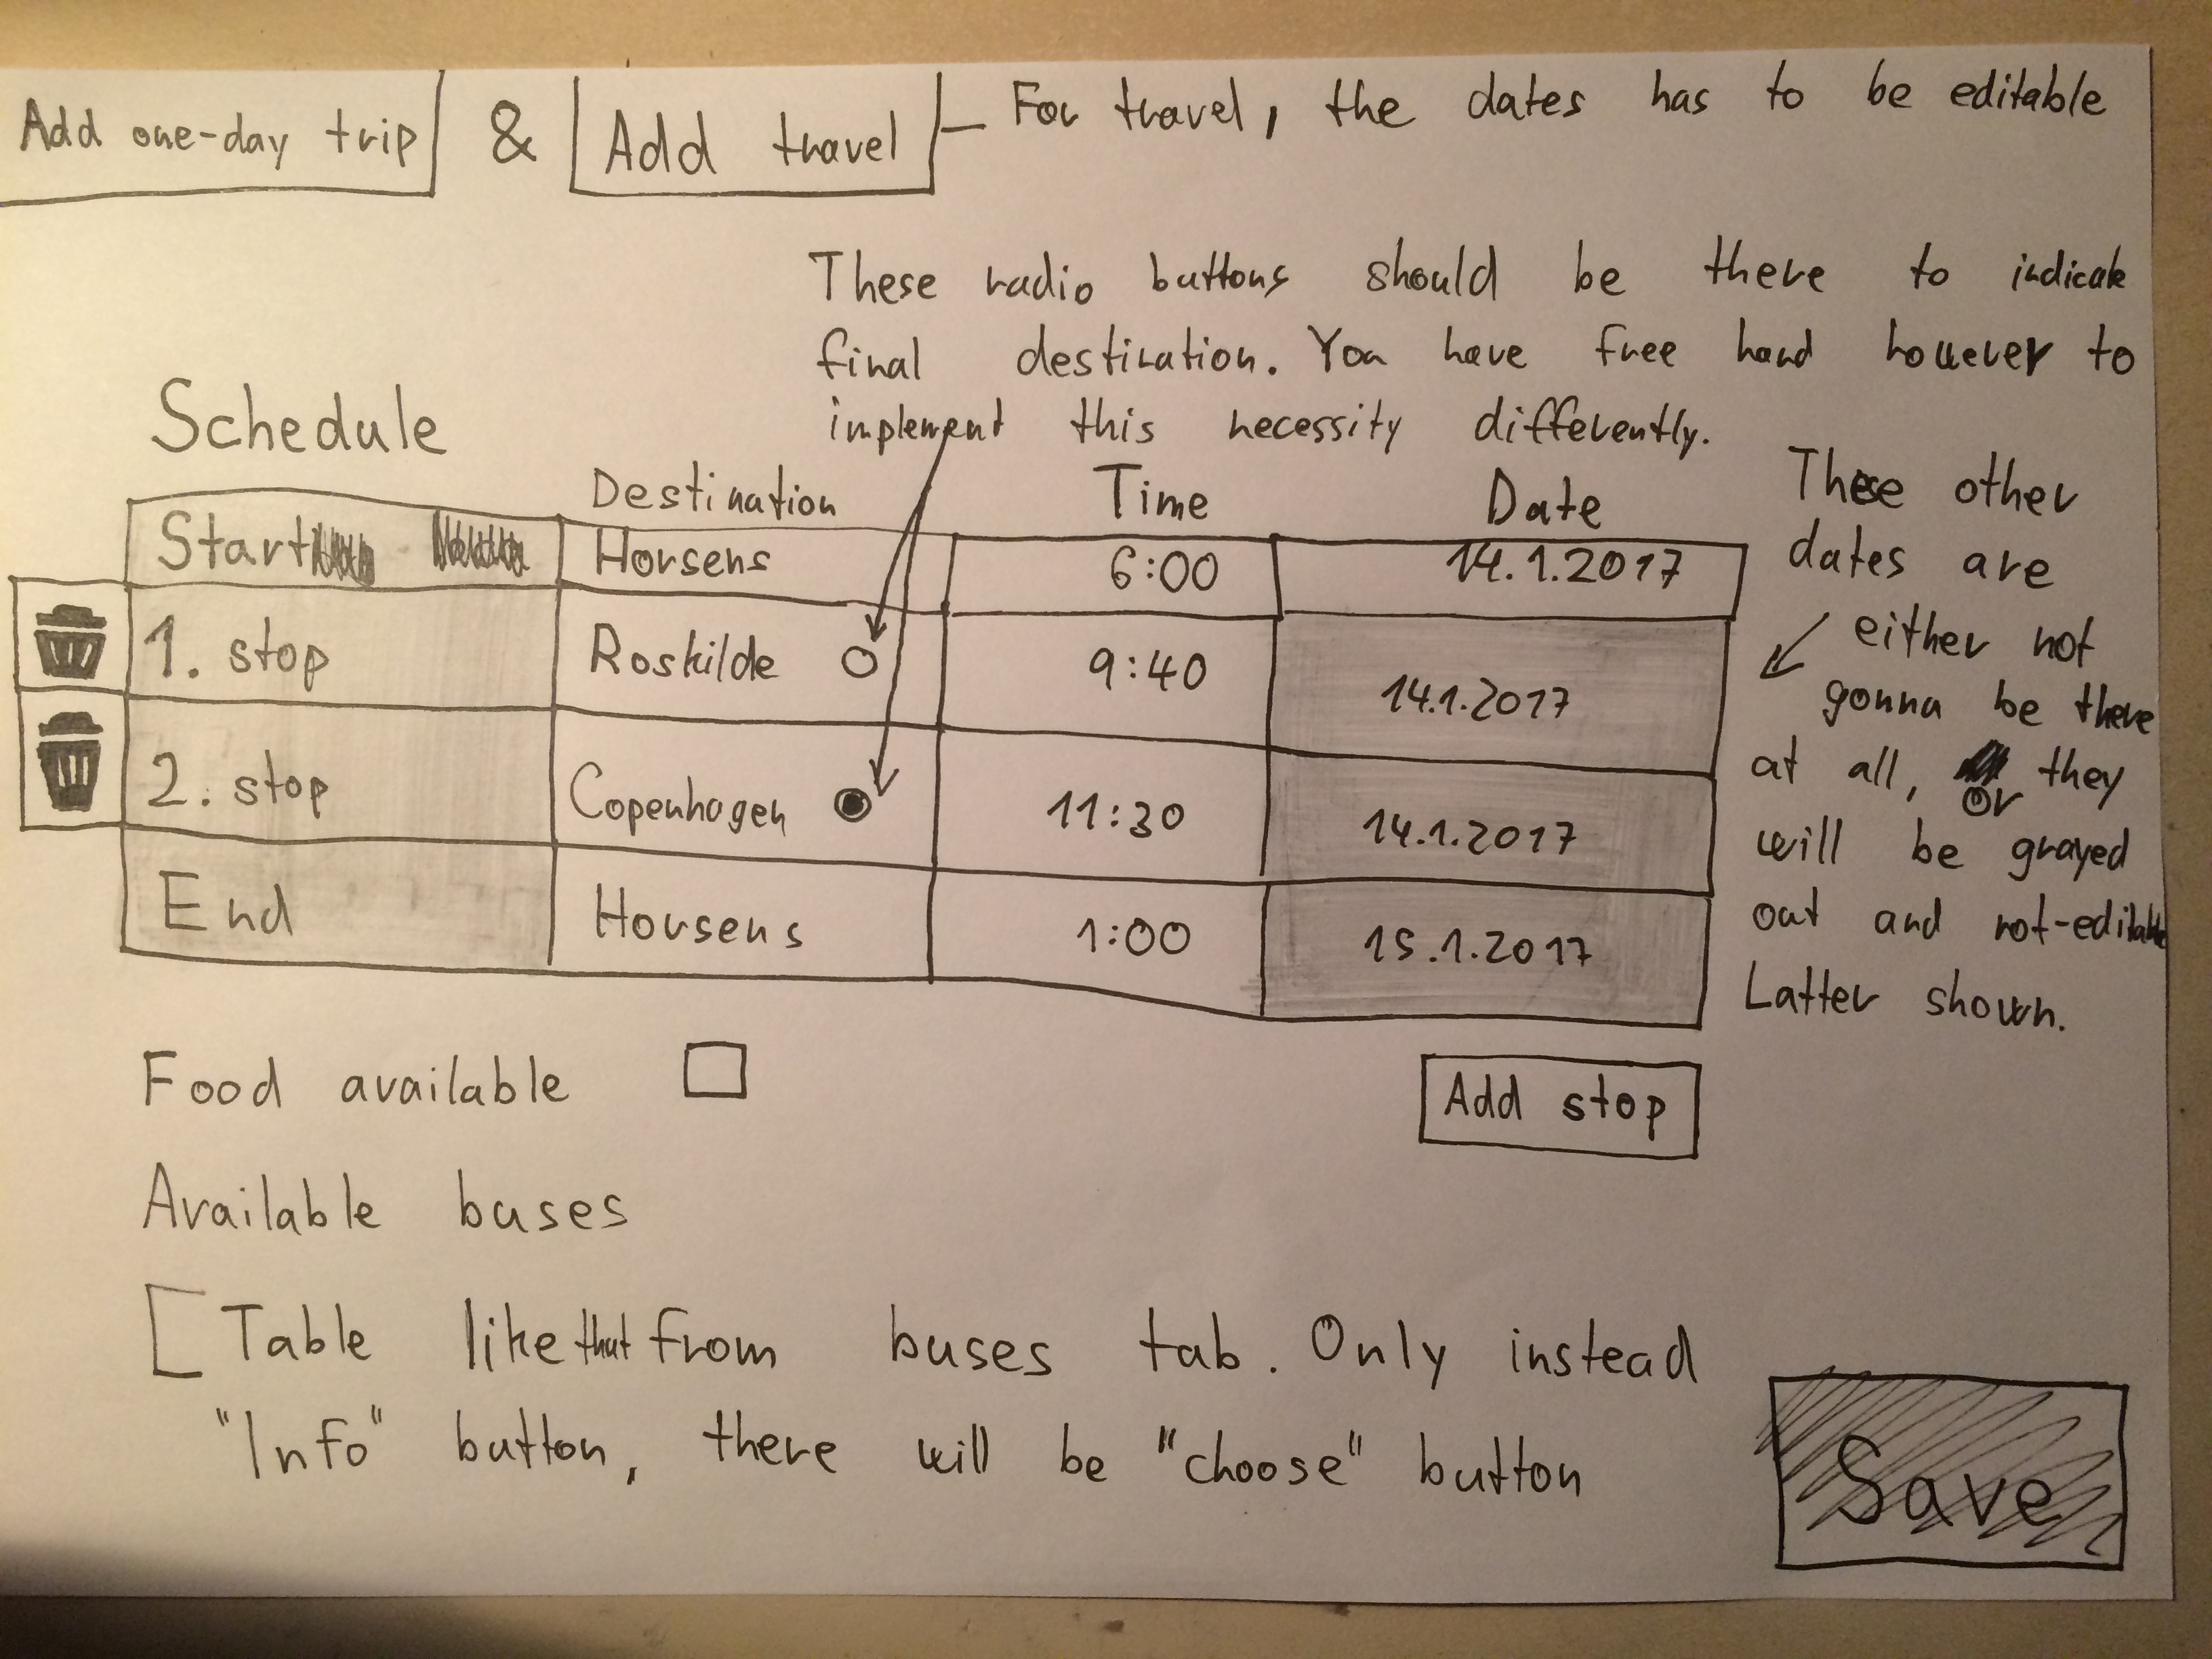 Add one-day trip & Add travel – For travel, the dates has to be editable
These radio buttons should be there to indicate
final destination. You have free hand however to
implement this necessity differently.
Schedule
Destination Time Date
Start Horsens 6:00 14.1.2017
1. stop Roskilde 9:40 14.1.2017
2. stop Copenhagen 11:30 14.1.2017
End Horsens 1:00 15.1.2017
These other
dates are
either not
gonna be there
at all, or they
will be grayed
out and not-editable
Latter shown.
Food available
Add stop
Available buses
[Table like that from buses tab. Only instead
"Info" button, there will be "choose" button
Save